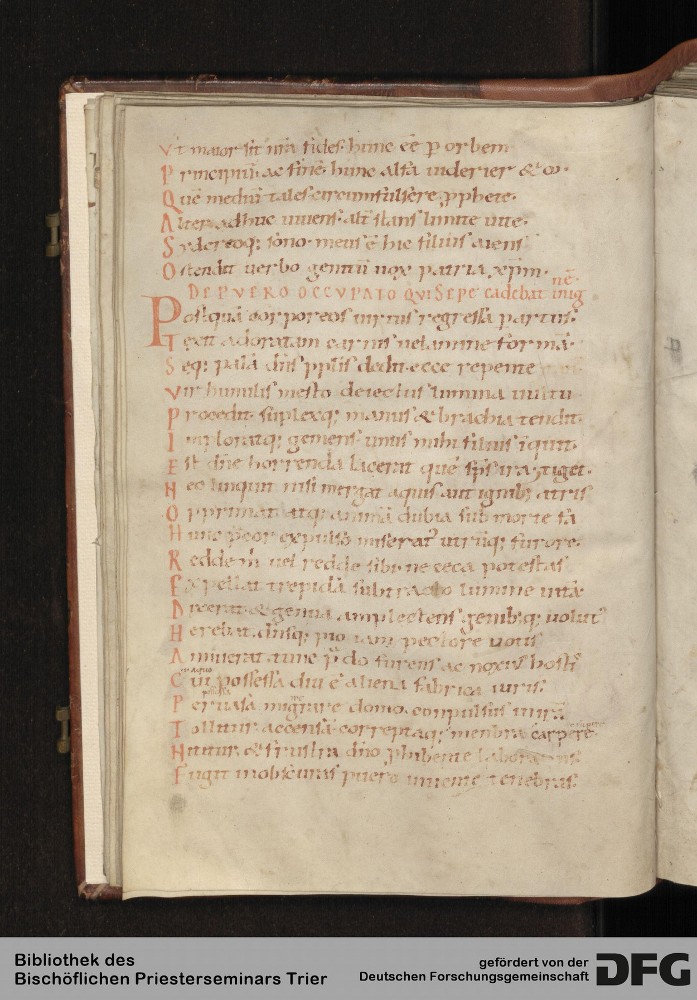 Vt maior sit ura fides. hunc ēē p orbem
Principiū ac finē. hunc alfa uiderier & ω.
Quē mediū tales circumfulsere pphete.
Alter adhuc uiuens. alt stans limite uite.
Sydereoq; sono meus ē hic filius aiens
Ostendit uerbo gentiū nox patria xpm.
DE PVERO OCCVPATO QVI SEPE cadebat in ignē
Postquā corporeos uirtus regressa p artus.
Texit adoratam carnis uelamine formā.
Seq; palā dn̄s pplis dedit. ecce repente
Vir humilis mesto deiectus lumina uultu
Procedit. suplexq; manus & brachia tendit.
Imploratq; gemens. unus mihi filius inquit.
Est dn̄e horrenda lacerat quē sp̄s ira
Nec linquit nisi mergat aquis aut ignib; atris
Opprimat. atq; animā dubia sub morte fa
Hunc pcor expulso miserat utriq; furore.
Redde m uel redde sibi. ne ceca potestas
Expellat trepidā subtracto lumine uitā.
Dixerat & genua amplectens genibusq; uolut
Herebat. dn̄sq; pio iam pectore uotis
Annuerat tunc p̄do furens ac noxi hosti
Cui possessa diu ē aliena fabrica iuris.
Peruasa migrare domo. conpulsus
Tollitur accensā. correptaq; menbra carpere
Nititur. & frustra dn̄o phibente laborans
Fugit in obscuras puero uiuente tenebras.
Bibliothek des
Bischöflichen Priesterseminars Trier
gefördert von der
Deutschen Forschungsgemeinschaft
DFG